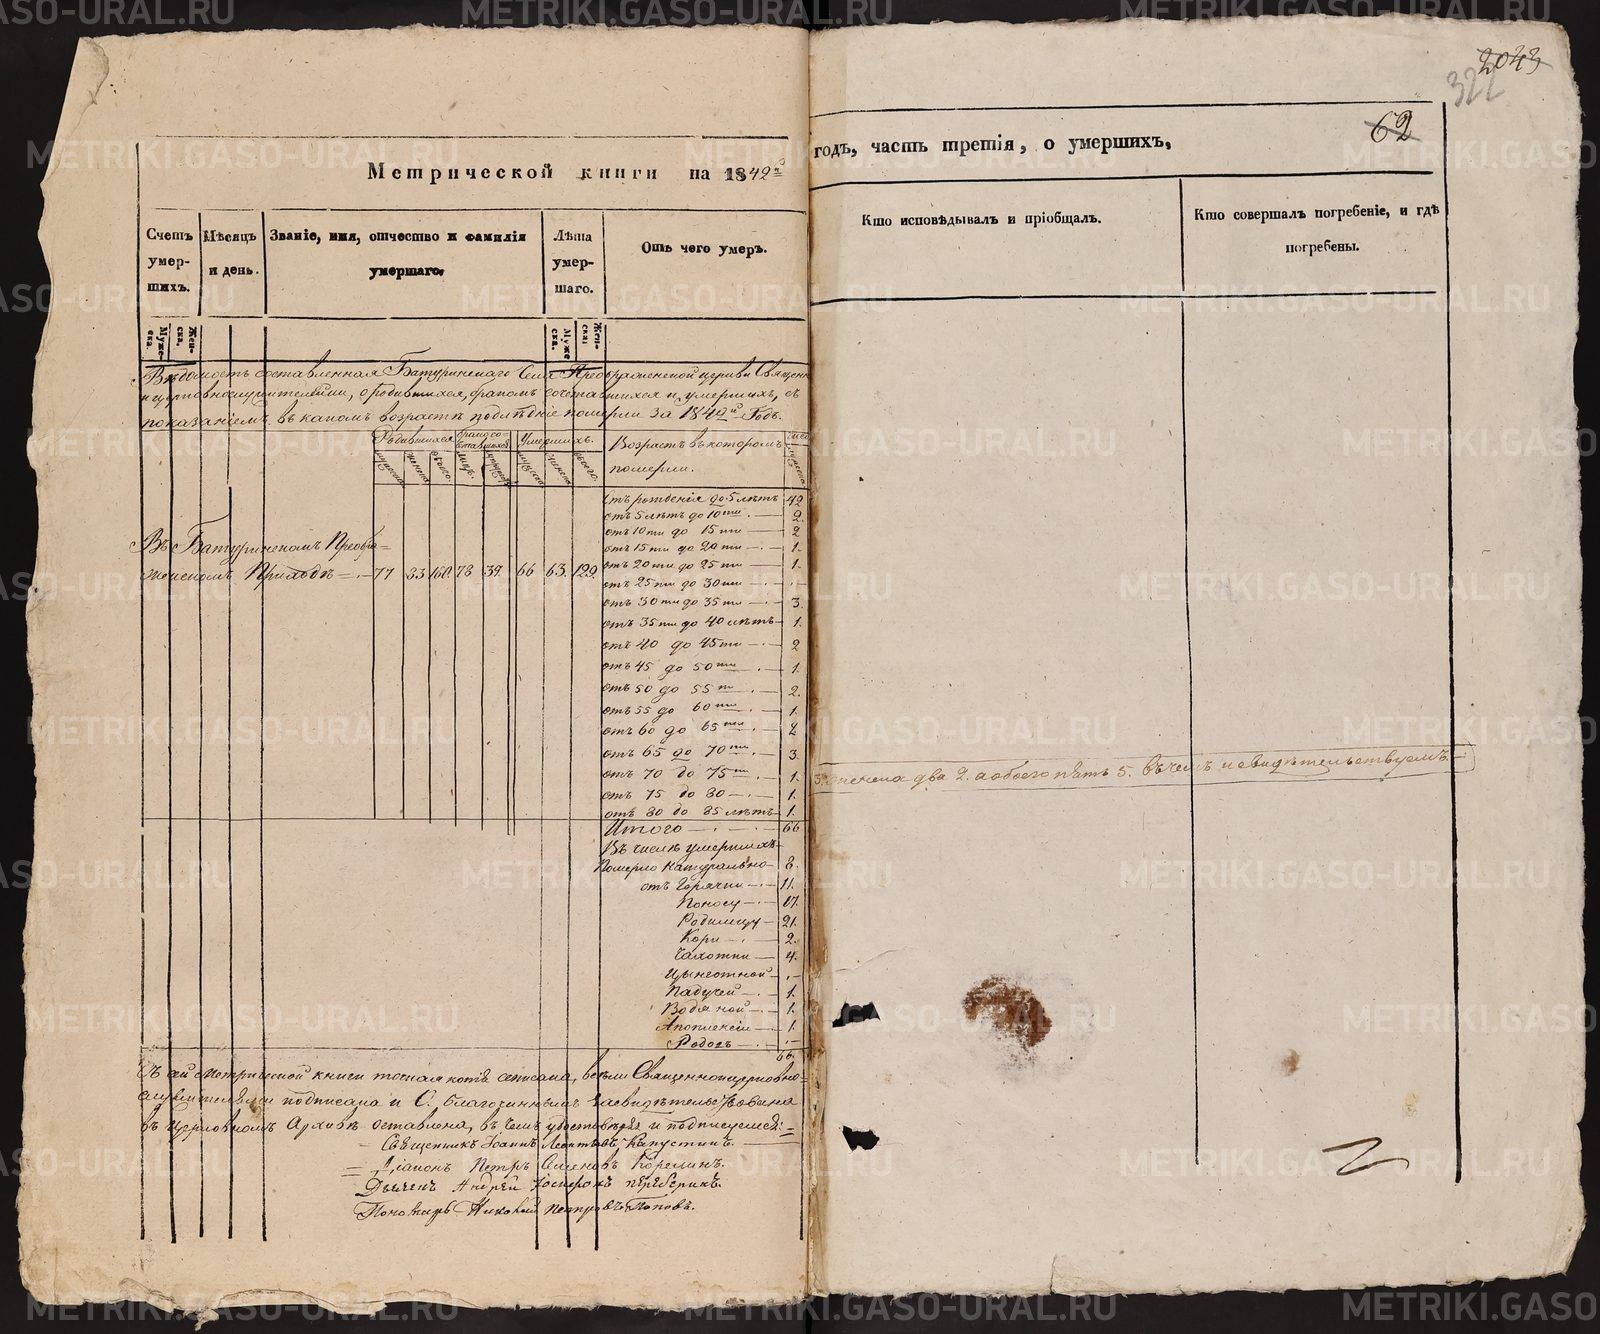 2043
322
62
Метрической книги на 1842й
годъ, часть третія, о умершихъ,
Счетъ умер-шихъ.
Мѣсяцъ и день.
Званіе, имя, отчество и фамилія умершаго.
Лѣта умер-шаго.
Отъ чего умеръ.
Кто исповѣдывалъ и пріобщалъ.
Кто совершалъ погребеніе, и гдѣ погребены.
Муже-ска.
Жен-ска.
Муже-ска.
Жен-ска.
Вѣдомость составленная Батуринскаго Села Преображенской церкви Священно
и церковнослужителями, о родившихся, бракомъ сочетавшихся и умершихъ, съ
показаніемъ въ какомъ возрастѣ послѣдніе померли за 1842й Годъ.
Родившихся
Умершихъ.
Возрастъ въ которомъ
померли.
Отъ рожденія до 5 лѣтъ 42
отъ 5 лѣтъ до 10ти — 2.
отъ 10ти до 15ти — 2
отъ 15ти до 20ти — 1.
Въ Батуринскомъ Преобра=
женскомъ Приходѣ — 77 83 160 78 39 66 63 129.
отъ 20ти до 25ти — 1.
отъ 25ти до 30ти — . —
отъ 30ти до 35ти — 3.
отъ 35ти до 40 лѣтъ — 1.
отъ 40 до 45ти — 2
отъ 45 до 50ти — 1.
отъ 50 до 55ти — 2.
отъ 55 до 60ти — 1.
отъ 60 до 65ти — 2
отъ 65 до 70ти — 3
отъ 70 до 75ти — 1.
отъ 75 до 80 — 1.
отъ 80 до 85 лѣтъ — 1.
Итого — 66
Въ числѣ умершихъ
Померло натурально — 8.
отъ Горячки — 11.
Поносу — 17.
Родимцу — 21.
Кори — 2.
Чахотки — 4.
Цынготной — . —
Падучей — 1.
Водяной — 1.
Апоплексіи — 1.
Родовъ — . —
66.
Съ сей метрической книги точная копія списана, всѣми Священноцерковно=
служителями подписана и С. Благочиннымъ засвидѣтельствована
въ церковномъ Архивѣ оставлена, въ чемъ удостовѣряя и подписуемся:=
Священникъ Іоаннъ Леонтьевъ Капустинъ.
Діаконъ Петръ Семеновъ Корелинъ.
Дьячекъ Андрей Іосифовъ
Пономарь Николай Петровъ Поповъ.
два 2. а обоего пять 5. Въ чемъ и свидѣтельствуемъ.
METRIKI.GASO-URAL.RU